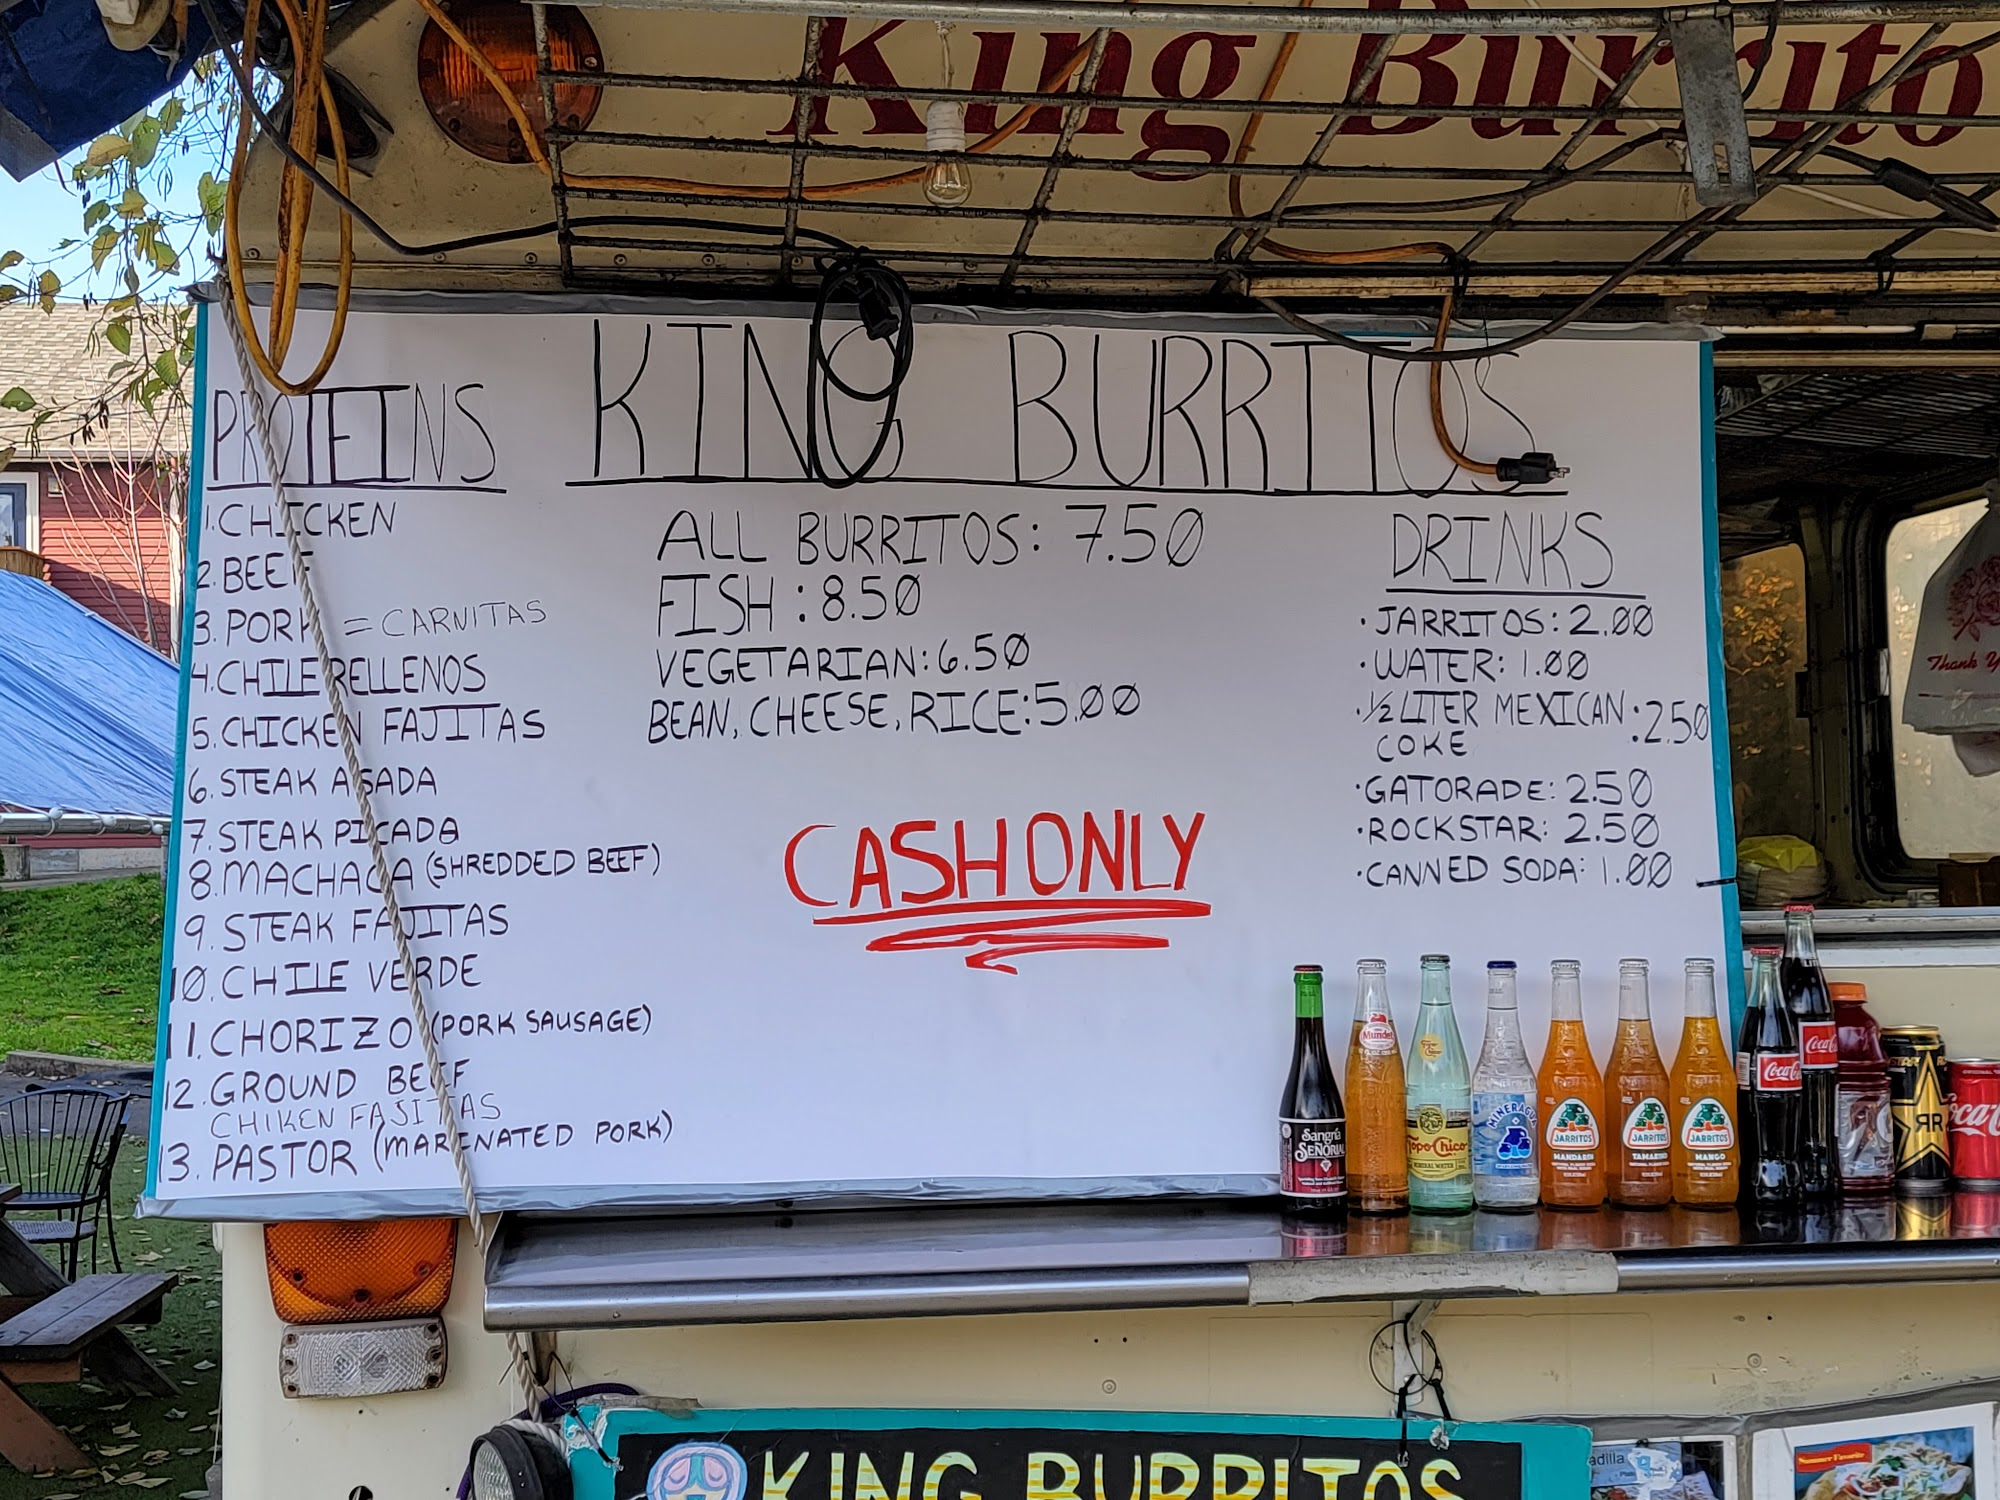 King Burrito
KING BURRITOS
PROTEINS
1. CHICKEN
2. BEEF
3. PORK = CARNITAS
4. CHILE RELLENOS
5. CHICKEN FAJITAS
6. STEAK ASADA
7. STEAK PICADO
8. MACHACA (SHREDDED BEEF)
9. STEAK FAJITAS
10. CHILE VERDE
11. CHORIZO (PORK SAUSAGE)
12. GROUND BEEF
CHIKEN FAJITAS
13. PASTOR (MARINATED PORK)
ALL BURRITOS: 7.50
FISH: 8.50
VEGETARIAN: 6.50
BEAN, CHEESE, RICE: 5.00
CASH ONLY
DRINKS
• JARRITOS: 2.00
• WATER: 1.00
• 1/2 LITER MEXICAN : 2.50
COKE
• GATORADE: 2.50
• ROCKSTAR: 2.50
• CANNED SODA: 1.00
Thank Y
Sangría
SEÑORIAL
Mundet
Topo Chico
MINERAL WATER
MINERAGUA
JARRITOS
MANDARIN
JARRITOS
TAMARIND
JARRITOS
MANGO
Coca-Co
Coca-C
Coca-C
KING BURRITOS
adilla
Summer Favorite